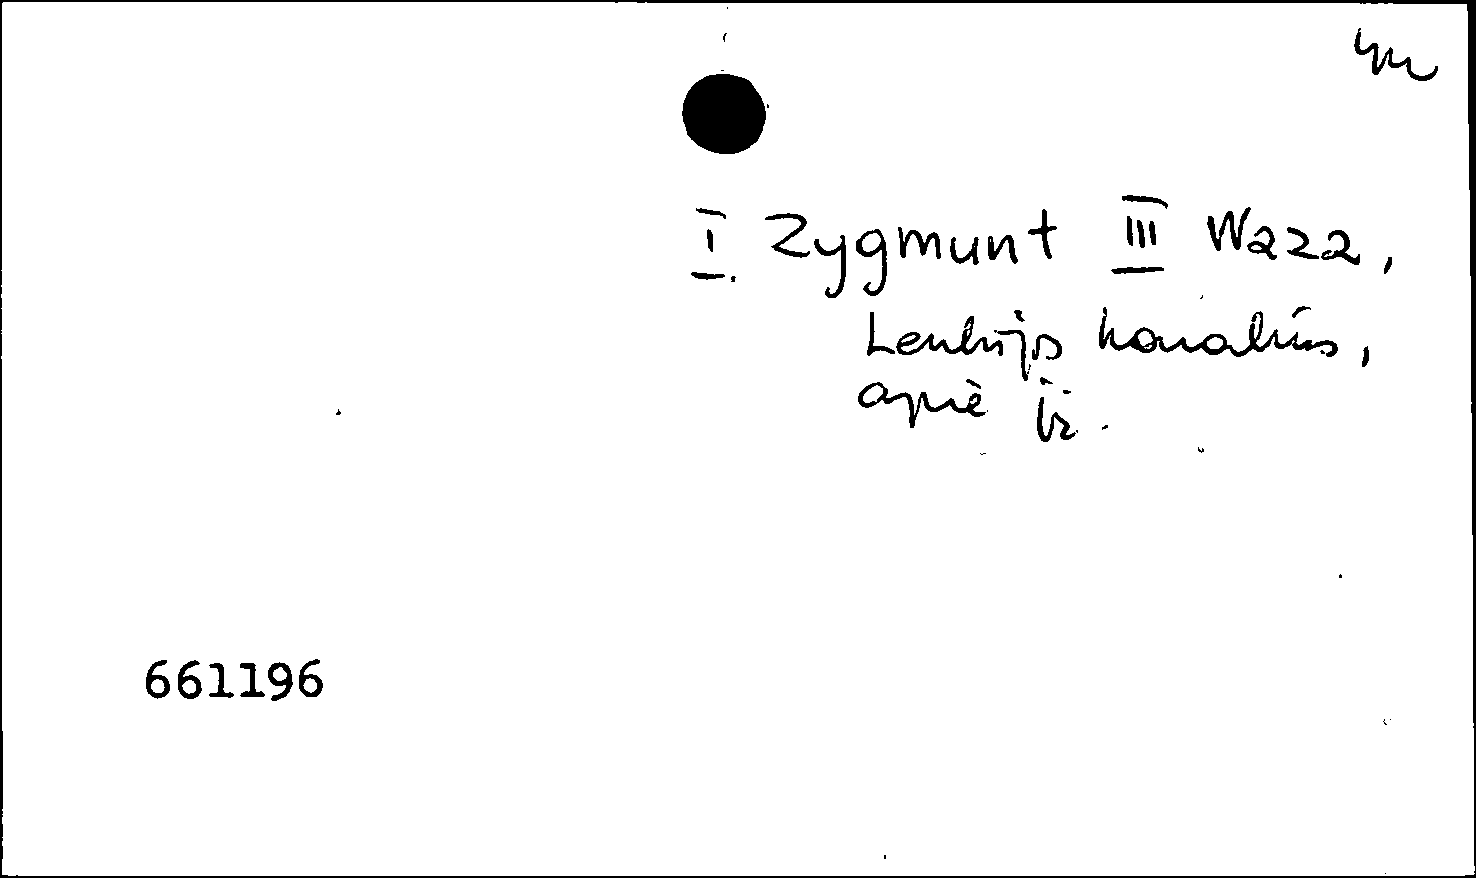 I. Zygmunt III Waza,
Lenkijos karalius,
apie jį.
661196